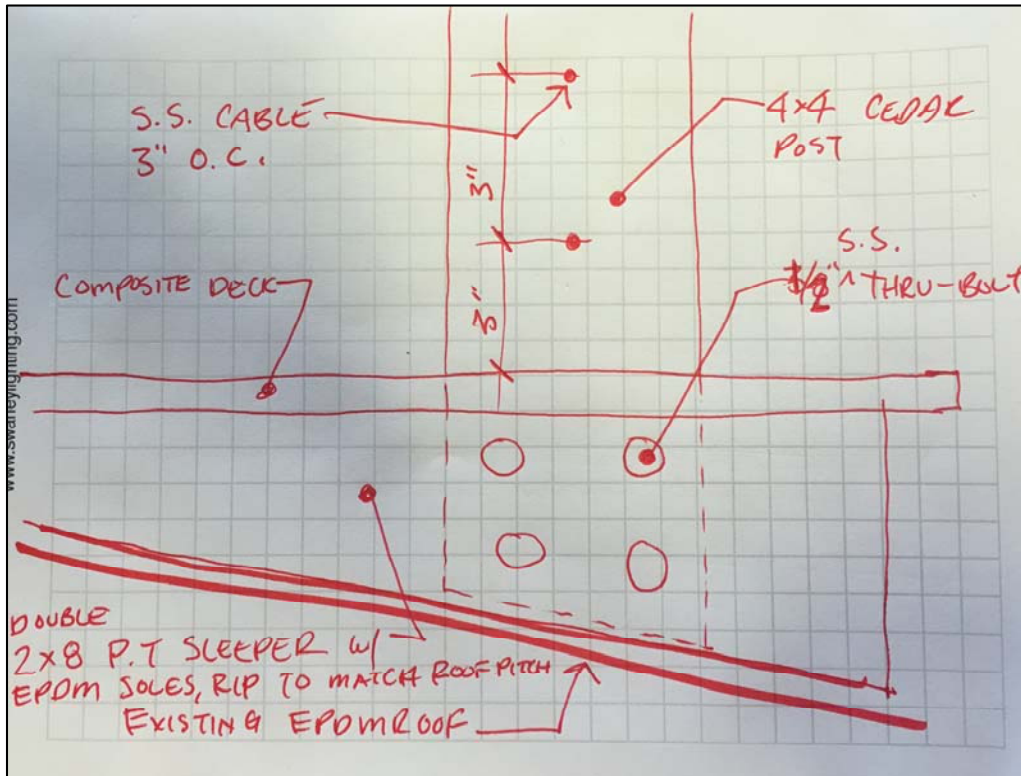 S.S. CABLE
3" O.C.
4x4 CEDAR
POST
3"
S.S.
1/2" ^ THRU-BOLT
COMPOSITE DECK
3"
www.swaneylighting.com
DOUBLE
2x8 P.T SLEEPER w/
EPDM SOLES, RIP TO MATCH ROOF PITCH
EXISTING EPDM ROOF